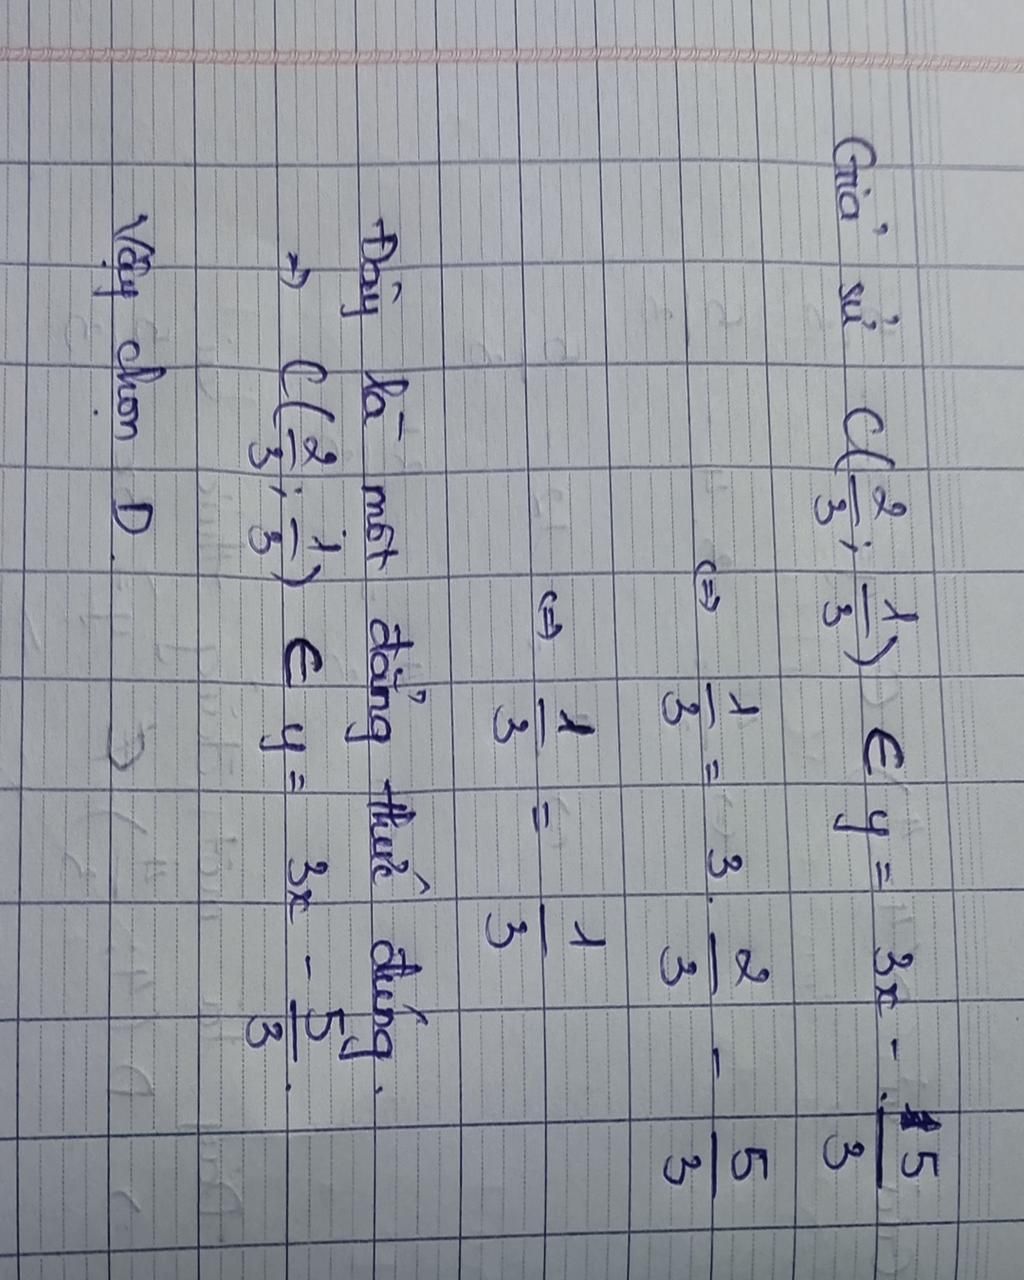 Giả sử C(2/3; 1/3) ∈ y = 3x - 5/3
⇔ 1/3 = 3. 2/3 - 5/3
⇔ 1/3 = 1/3
Đây là một đẳng thức đúng.
⇒ C(2/3; 1/3) ∈ y = 3x - 5/3.
Vậy chọn D.